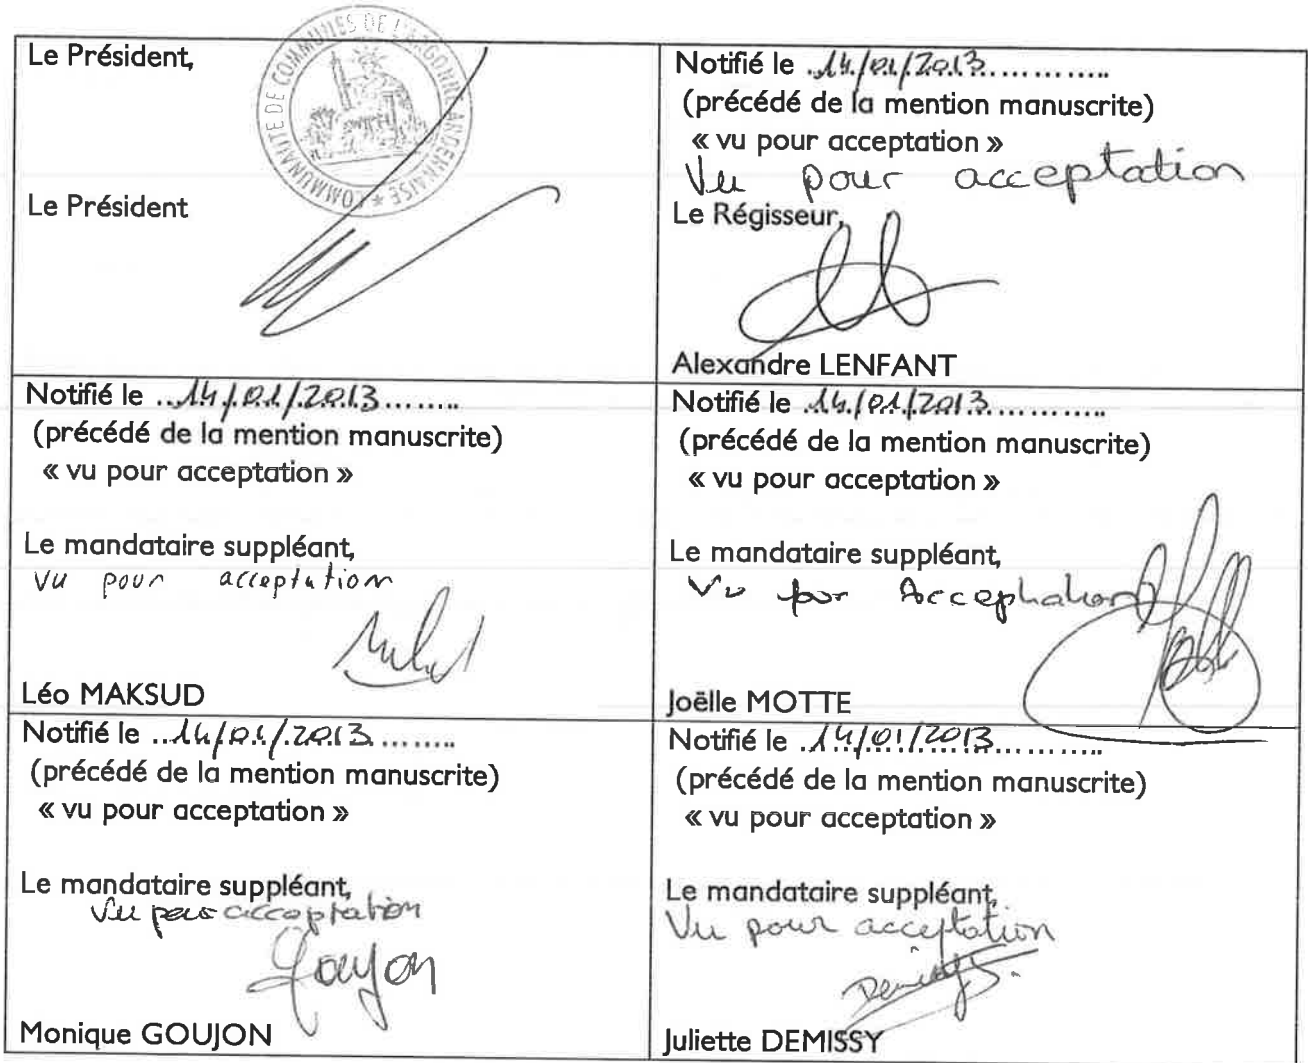 Le Président,
COMMUNAUTE DE COMMUNES DE L'ARGONNE ARDENNAISE *
Le Président
Notifié le ..14/01/2013............
(précédé de la mention manuscrite)
« vu pour acceptation »
Vu pour acceptation
Le Régisseur,
Alexandre LENFANT
Notifié le ...14/01/2013........
(précédé de la mention manuscrite)
« vu pour acceptation »
Le mandataire suppléant,
Vu pour acceptation
Léo MAKSUD
Notifié le .14/01/2013............
(précédé de la mention manuscrite)
« vu pour acceptation »
Le mandataire suppléant,
Vu pour Acceptation
Joëlle MOTTE
Notifié le ...14/01/2013........
(précédé de la mention manuscrite)
« vu pour acceptation »
Le mandataire suppléant,
Vu pour acceptation
Goujon
Monique GOUJON
Notifié le .14/01/2013............
(précédé de la mention manuscrite)
« vu pour acceptation »
Le mandataire suppléant,
Vu pour acceptation
Demissy
Juliette DEMISSY